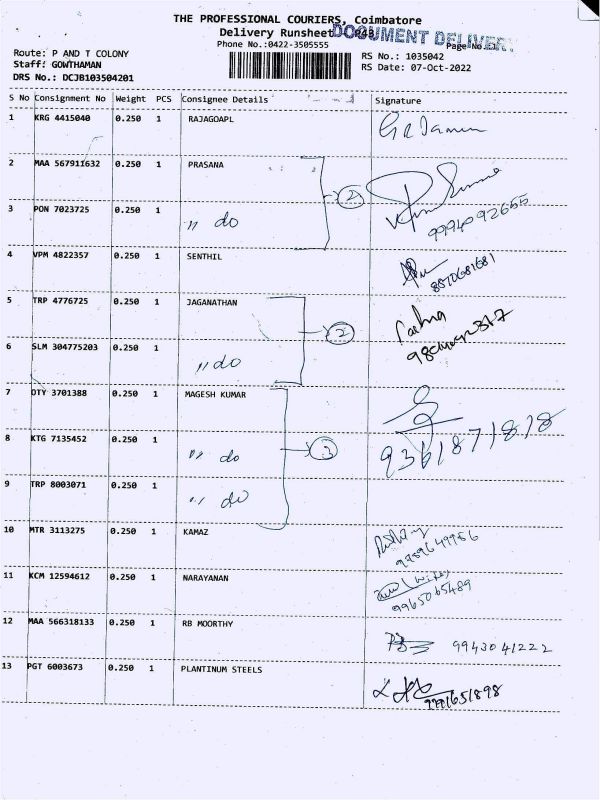 THE PROFESSIONAL COURIERS, Coimbatore
Delivery Runsheet
DOCUMENT DELIVERY
Phone No.:0422-3505555
Page No
Route: P AND T COLONY
Staff: GOWTHAMAN
DRS No.: DCJB103504201
RS No.: 1035042
RS Date: 07-Oct-2022
S No Consignment No Weight PCS Consignee Details Signature
1 KRG 4415040 0.250 1 RAJAGOAPL
2 MAA 567911632 0.250 1 PRASANA
2
3 PON 7023725 0.250 1 " do
9994092655
4 VPM 4822357 0.250 1 SENTHIL
5 TRP 4776725 0.250 1 JAGANATHAN
2
6 SLM 304775203 0.250 1 " do
7 OTY 3701388 0.250 1 MAGESH KUMAR
8 KTG 7135452 0.250 1 " do
3
9361871818
9 TRP 8003071 0.250 1 " do
10 MTR 3113275 0.250 1 KAMAZ
11 KCM 12594612 0.250 1 NARAYANAN
(wife)
9965065489
12 MAA 566318133 0.250 1 RB MOORTHY
9943041222
13 PGT 6003673 0.250 1 PLANTINUM STEELS